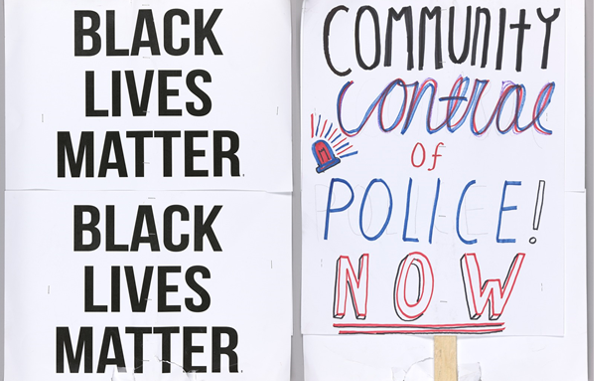 BLACK
LIVES
MATTER
BLACK
LIVES
MATTER
COMMUNITY
Control
OF
POLICE!
NOW